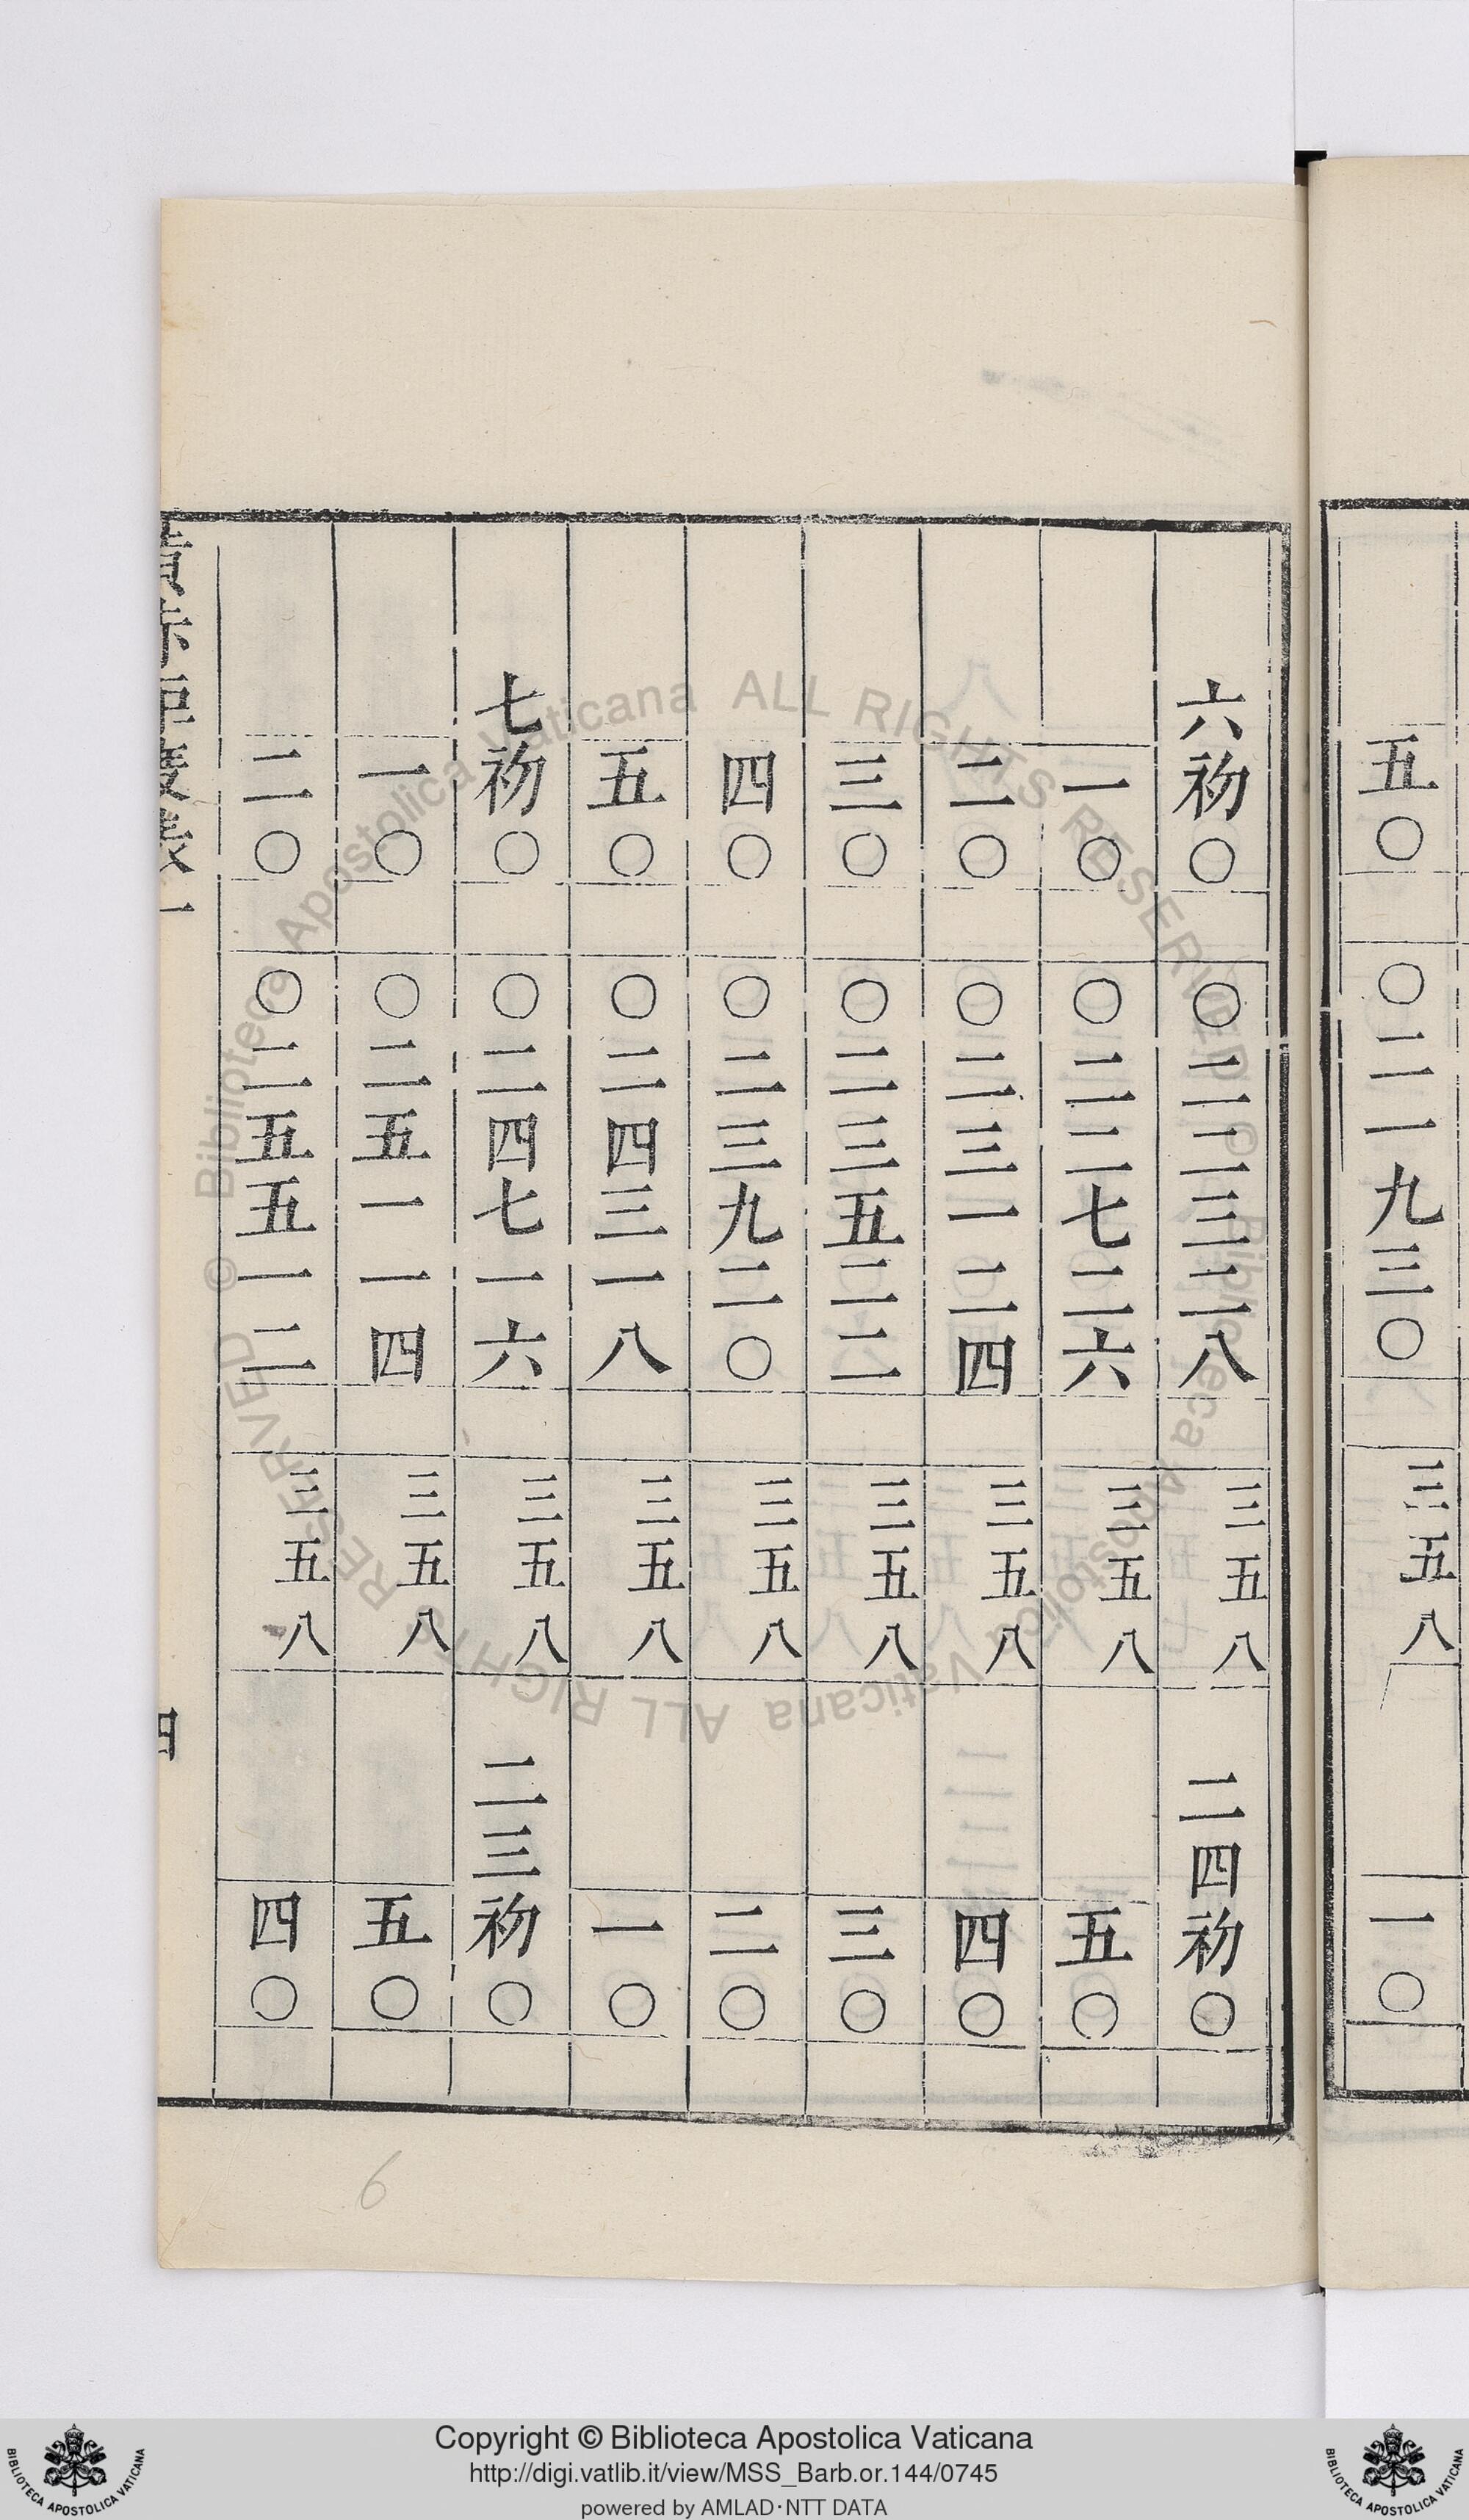 五〇 〇二一九三〇 三五八 一〇
六初〇 〇二二三二八 三五八 二四初〇
一〇 〇二二七二六 三五八 五〇
二〇 〇二三一二四 三五八 四〇
三〇 〇二三五二二 三五八 三〇
四〇 〇二三九二〇 三五八 二〇
五〇 〇二四三一八 三五八 一〇
七初〇 〇二四七一六 三五八 二三初〇
一〇 〇二五一一四 三五八 五〇
二〇 〇二五五一二 三五八 四〇
6
© Biblioteca Apostolica Vaticana ALL RIGHTS RESERVED © Biblioteca Apostolica Vaticana ALL RIGHTS RESERVED
Copyright © Biblioteca Apostolica Vaticana
http://digi.vatlib.it/view/MSS_Barb.or.144/0745
powered by AMLAD·NTT DATA
BIBLIOTECA APOSTOLICA VATICANA
BIBLIOTECA APOSTOLICA VATICANA